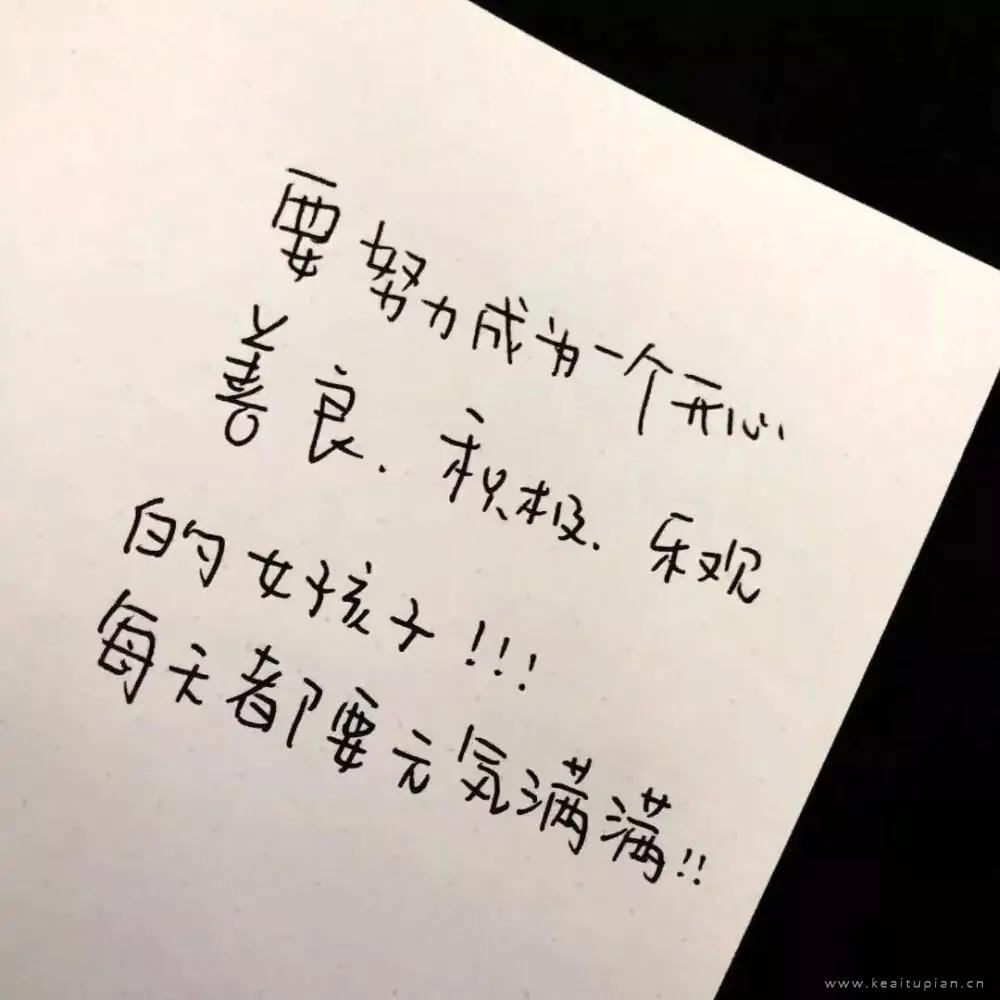 要努力成为一个开心
善良.积极.乐观
的女孩子!!!
每天都要元気满满!!
www.keaitupian.cn